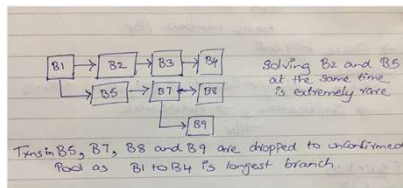 B1 B2 B3 B4
Solving B2 and B5
at the same time
is extremely rare
B5 B7 B8
B9
Txns in B5, B7, B8 and B9 are dropped to unconfirmed
Pool as B1 to B4 is longest branch.